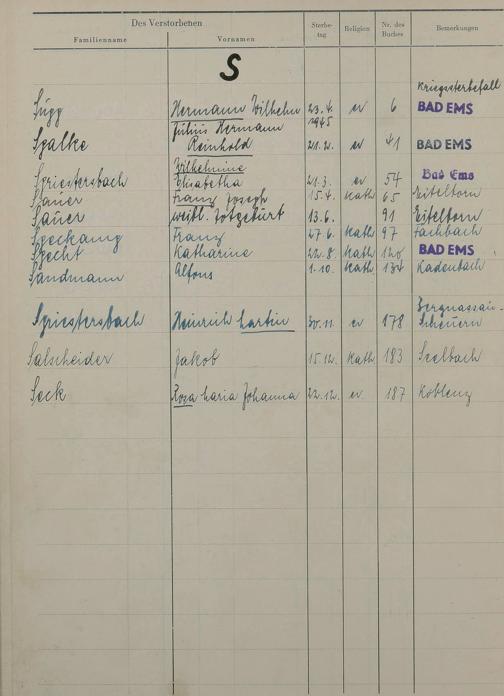 Des Verstorbenen Sterbe- Religion Nr. des Bemerkungen
Familienname Vornamen tag Buches
S
Kriegssterbefall
Sügg Hermann Wilhelm 23.4. ev 6 BAD EMS
1945
Julius Hermann
Spalke Reinhold 21.2. ev 41 BAD EMS
Wilhelmine
Spriestersbach Elisabetha 21.3. ev 54 Bad Ems
Sauer Franz Joseph 15.4. kath 65 Eitelborn
Sauer weibl. Totgeburt 13.6. 91 Eitelborn
Franz 27.6. kath 97 Fachbach
Specht Katharine 22.8. kath 120 BAD EMS
Sandmann Alfons 1.10. kath 134 Kadenbach
Bergnassau-
Spriestersbach Heinrich Martin 30.11. ev 178 Scheuern
Salscheider Jakob 15.12. kath 183 Seelbach
Seck Rosa Maria Johanna 22.12. ev 187 Koblenz